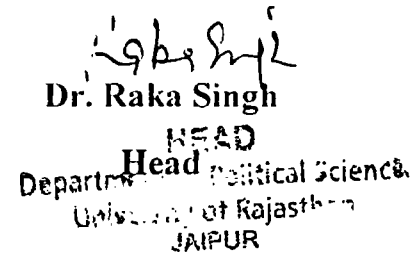 Raka Singh
Dr. Raka Singh
HEAD
Head
Department Political Science
University of Rajasthan
JAIPUR